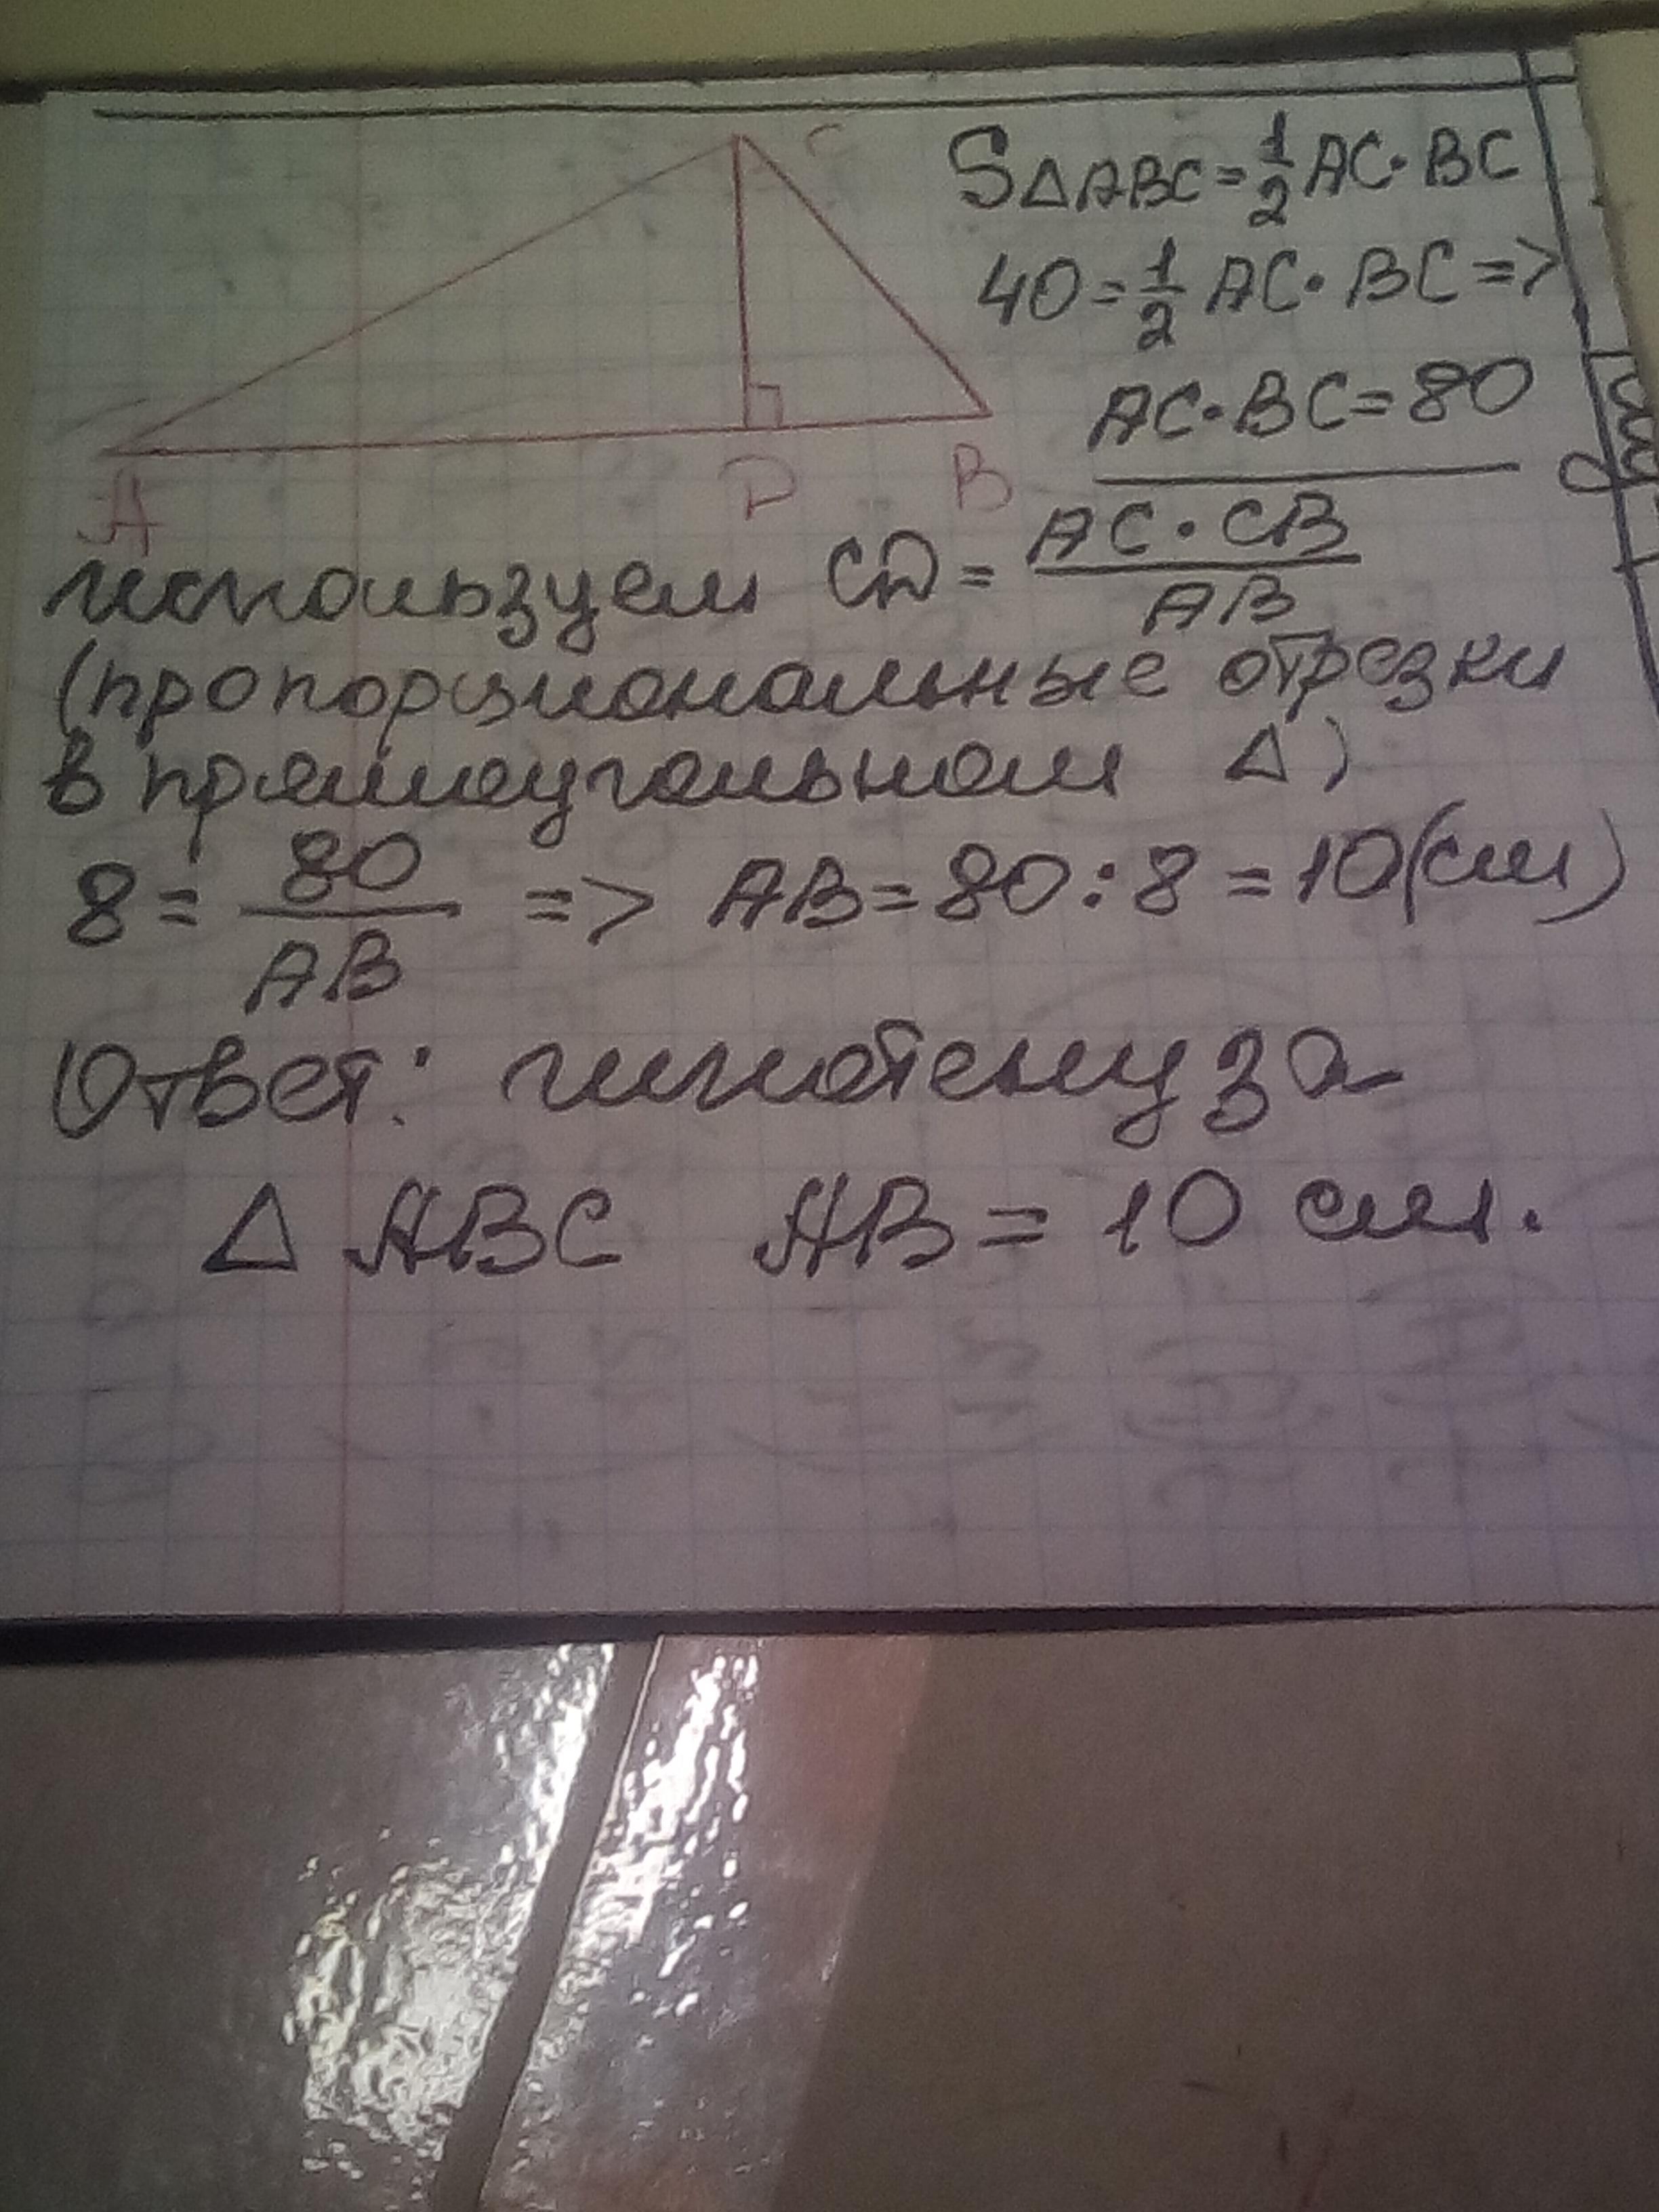 C
S△ABC=1/2 AC·BC
40=1/2 AC·BC=>
AC·BC=80
A D B
используем CD= AC·CB/AB
(пропорциональные отрезки
в прямоугольном △)
8= 80/AB => AB=80:8=10(см)
Ответ: гипотенуза
△ ABC AB= 10 см.